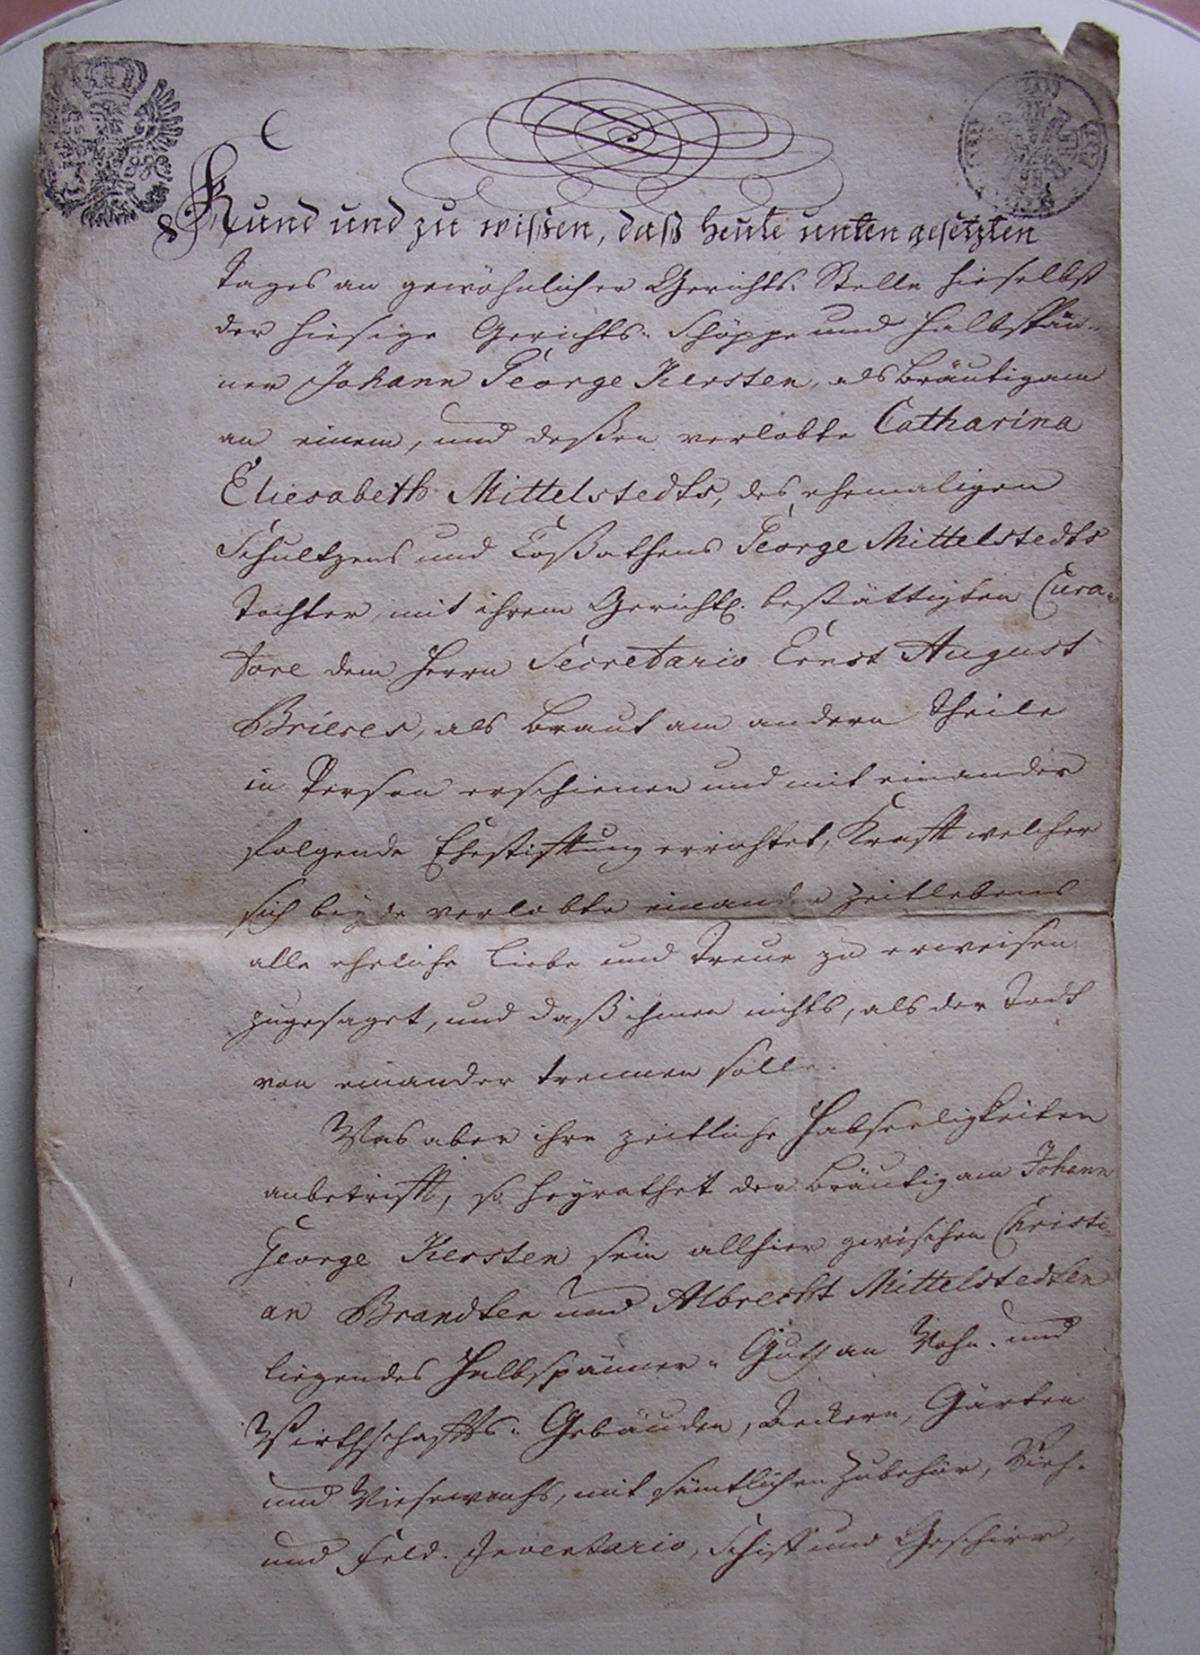 Kund und zu wißen, daß heute unten gesetzten
Tages an gewöhnlicher Gerichts-Stelle hieselbst
der hiesige Gerichts-Schöppe und Halbspän-
ner Johann George Kersten, als Bräutigam
an einem, und deßen verlobte Catharina
Eliesabeth Mittelstedts, des ehemaligen
Schultzens und Coßathens George Mittelstedts
Tochter, mit ihrem Gerichtl. bestättigten Cura-
tore dem Herrn Secretario Ernst August
Brieses, als Braut am andern Theile
in Person erschienen und mit einander
folgende Ehestifftung errichtet, Krafft welcher
sich beyde verlobte einander zeitlebens
alle eheliche Liebe und Treue zu erweisen
zugesaget, und daß ihnen nichts, als der Todt
von einander trennen solle.
Was aber ihre zeitliche Habseeligkeiten
anbetrifft, so heyrathet der Bräutigam Johann
George Kersten sein allhier zwischen Christi-
an Brandten und Albrecht Mittelstedten
liegendes Halbspänner-Guth an Wohn- und
Wirthschaffts-Gebäuden, Aeckern, Gärten
und Wiesewachs, mit sämtlichen Zubehör, Vieh-
und Feld-Inventario, Schiff und Geschirr,